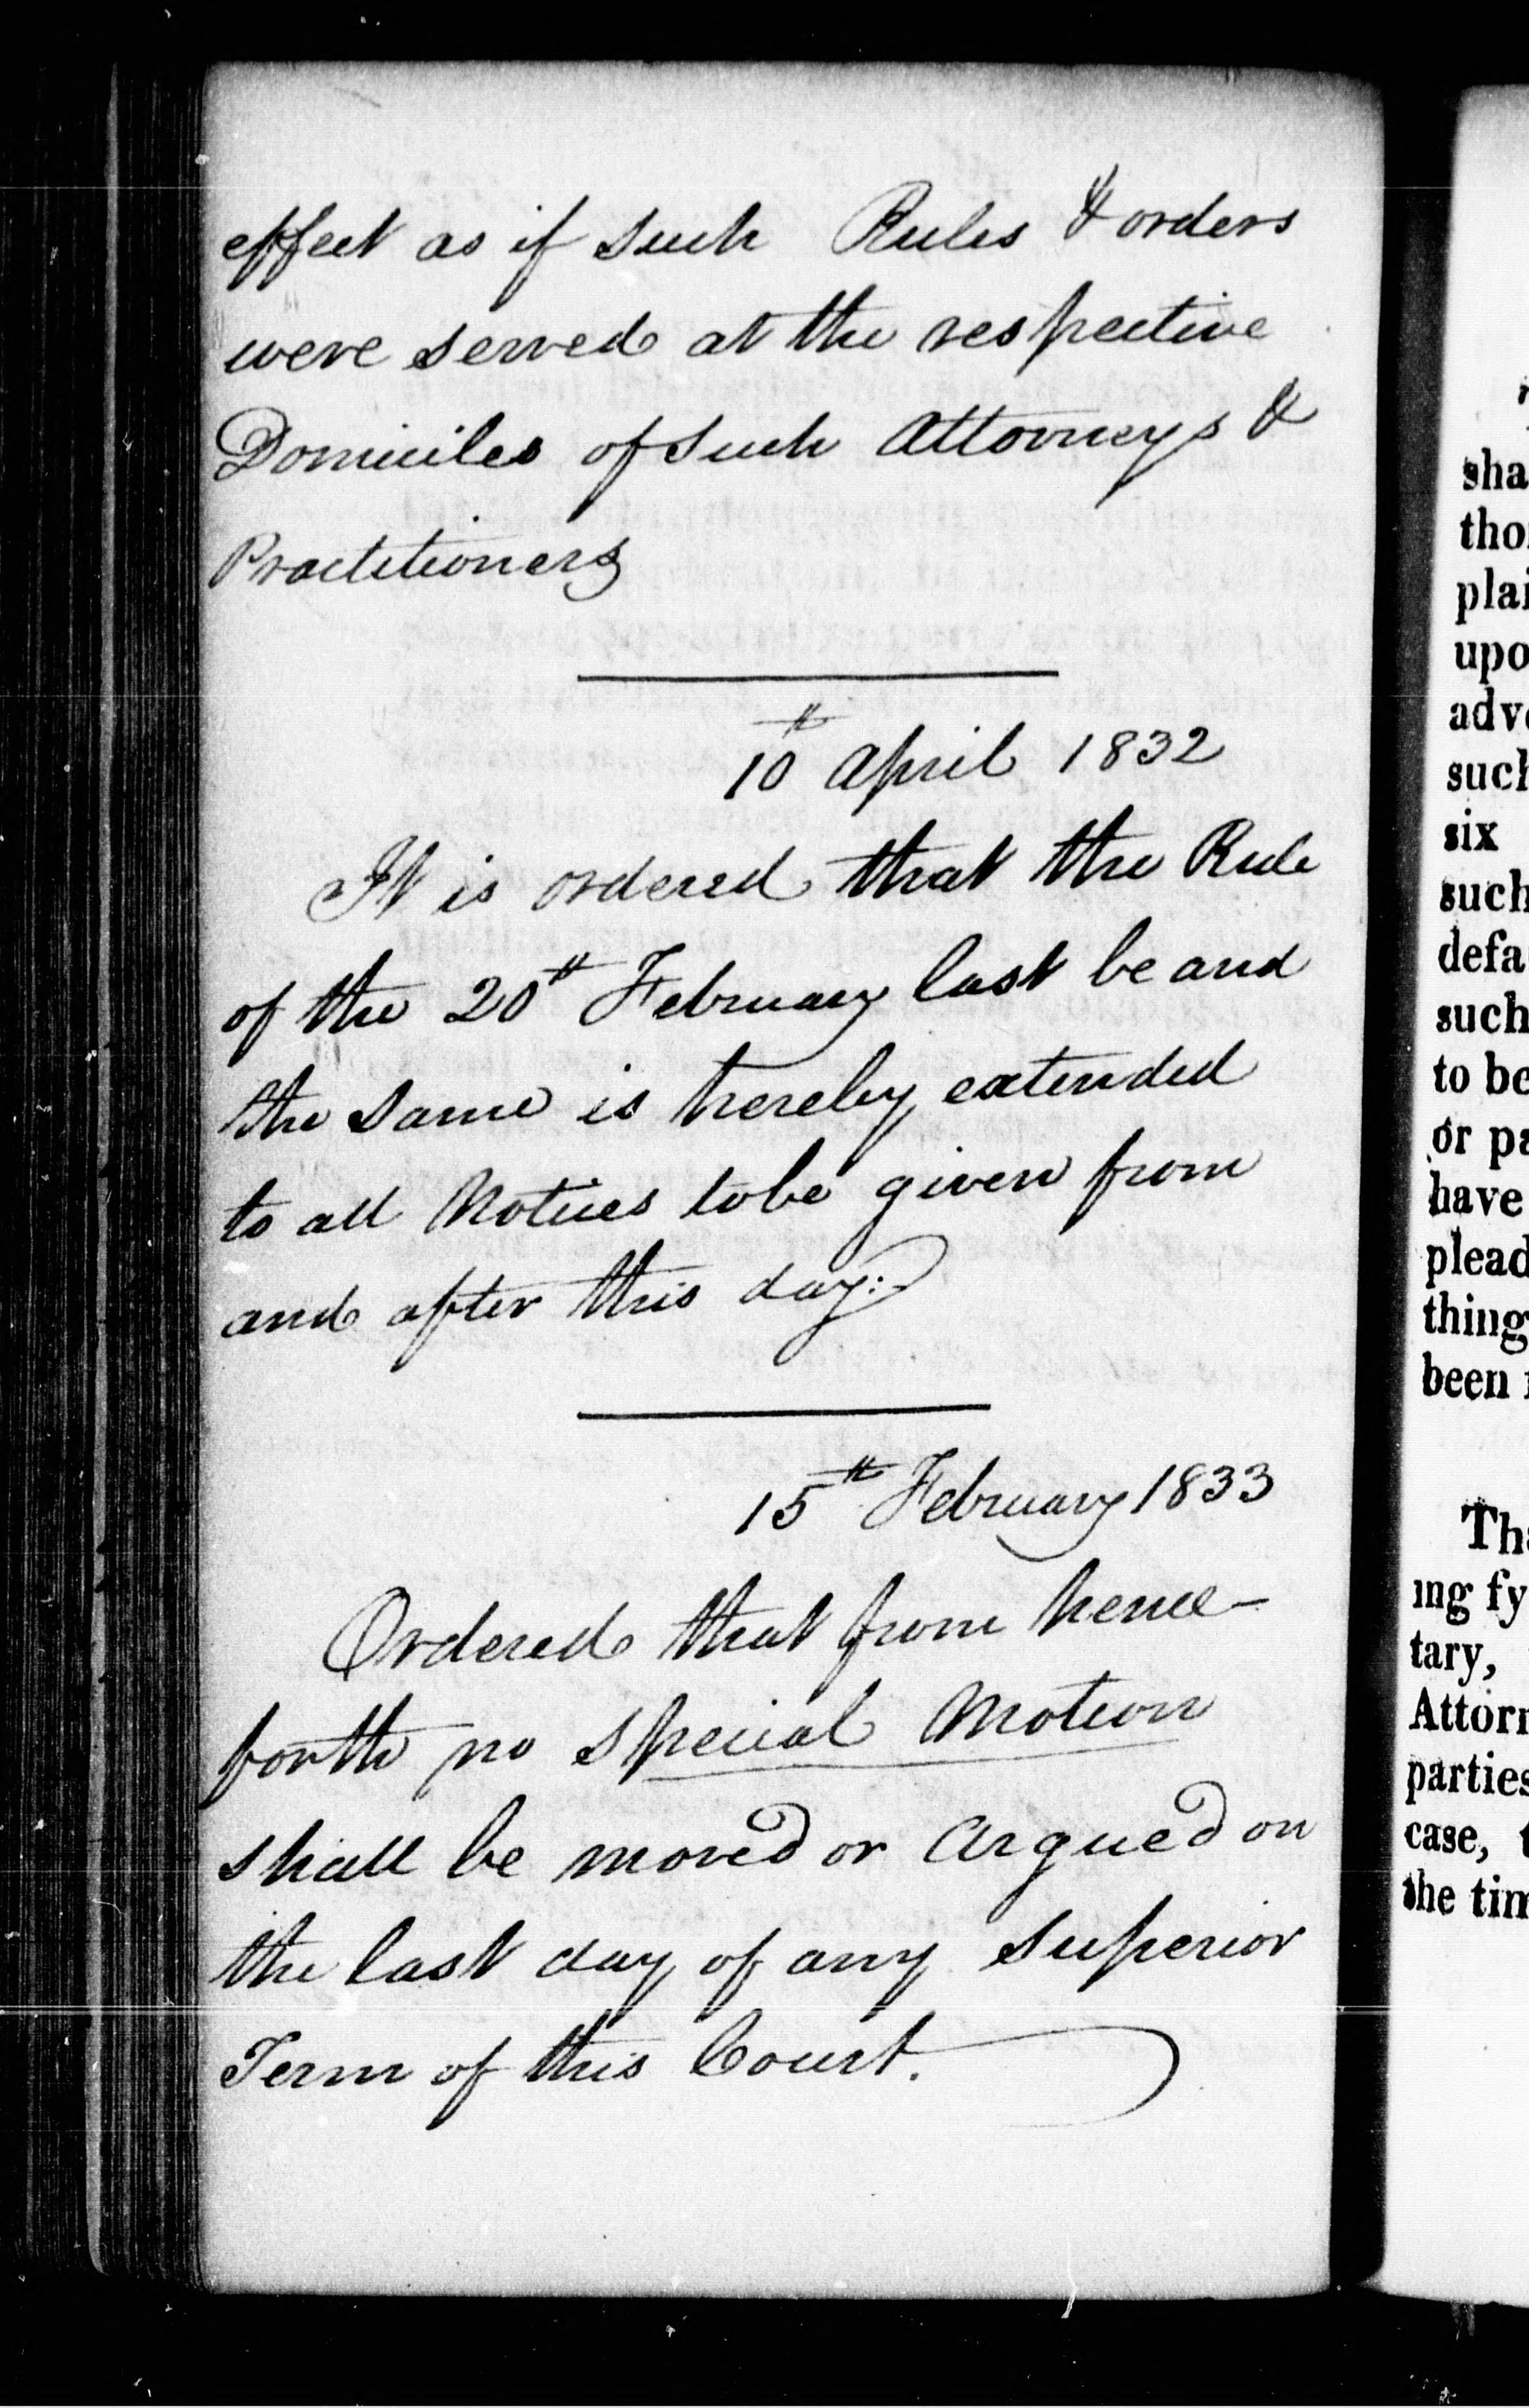 effect as if such Rules & orders
were served at the respective
Domiciles of such Attorneys &
Practitioners
10th April 1832
It is ordered that the Rule
of the 20th February last be and
the same is hereby extended
to all Notices to be given from
and after this day:
15th February 1833
Ordered that from hence-
forth no special Motion
shall be moved or Argued on
the last day of any Superior
Term of this Court.
sha
tho
plai
upo
adve
such
six
such
defa
such
to be
or pa
have
plead
thing
been
Tha
ing fy
tary,
Attorn
parties
case, t
the tim